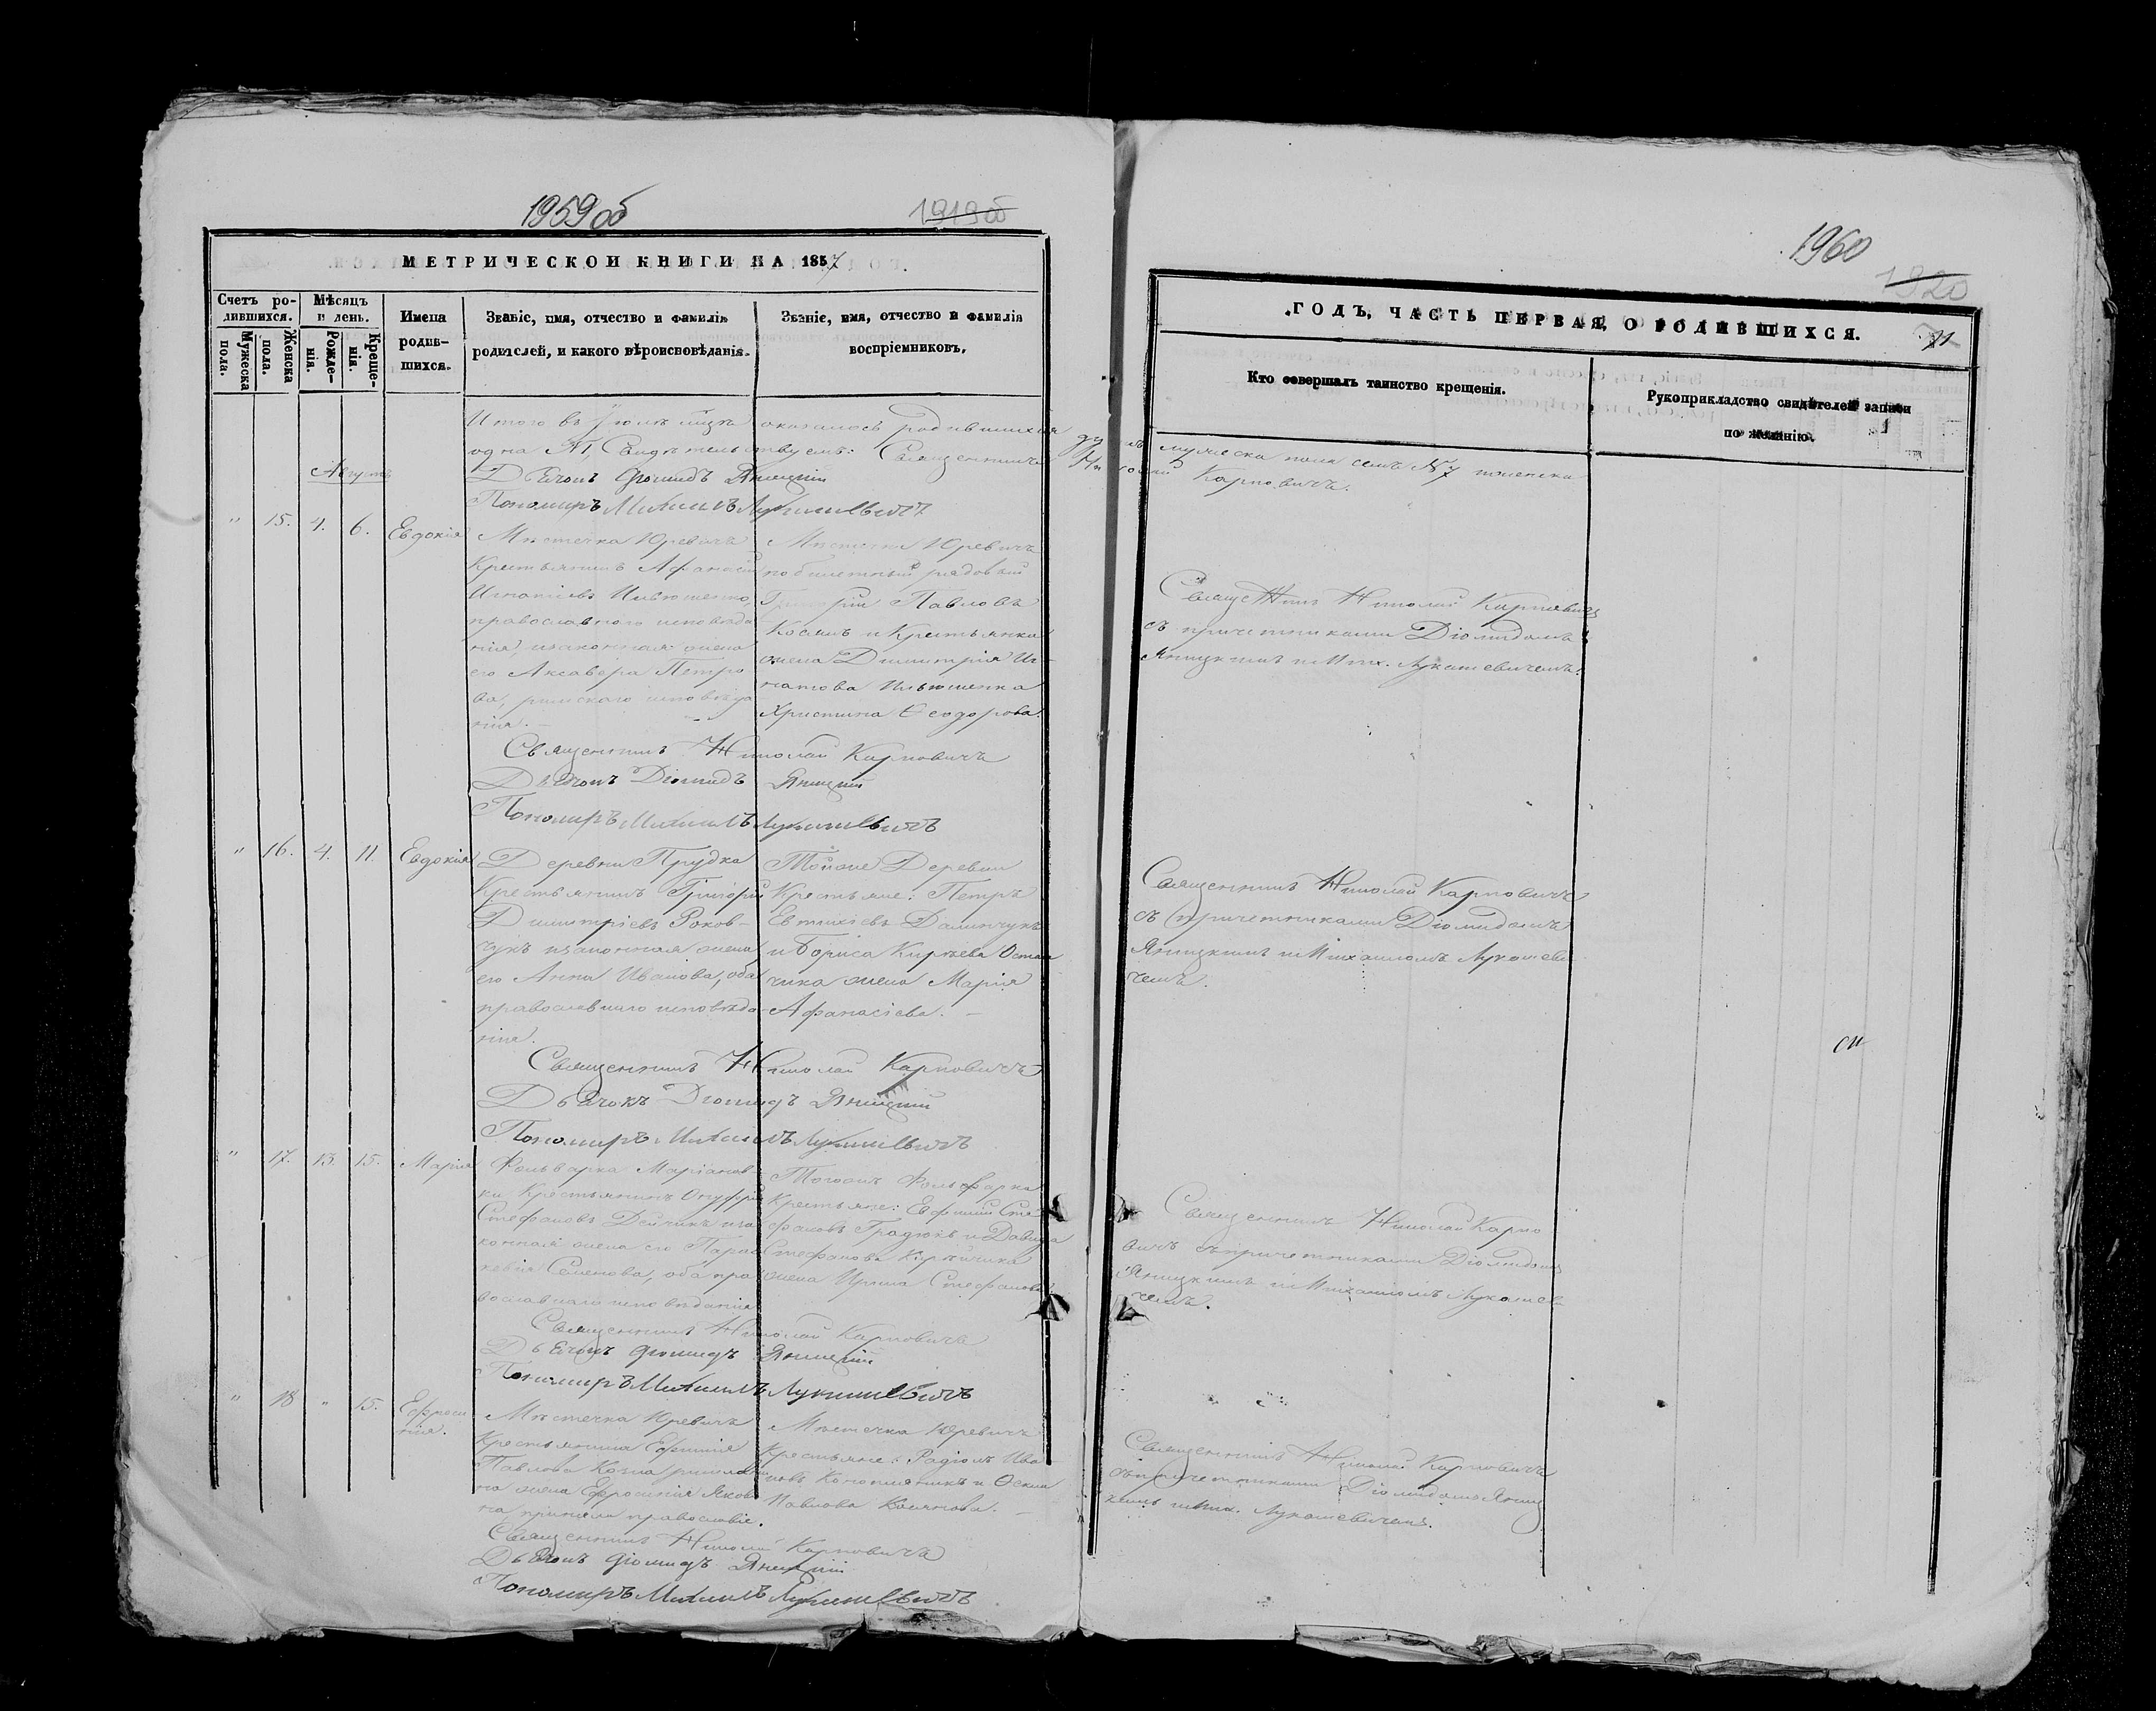 1959 об
1919 об
МЕТРИЧЕСКОЙ КНИГИ НА 1857
Счетъ ро-
дившихся.
Мужеска
пола.
Женска
пола.
Мѣсяцъ
и день.
Рожде-
нія.
Креще-
нія.
Имена
родив-
шихся.
Званіе, имя, отчество и фамилія
родителей, и какого вѣроисповѣданія.
Званіе, имя, отчество и фамилія
воспріемниковъ.
Итого въ Іюлѣ оказалось родившихся
одна №1, Свидѣтельствуемъ: Священникъ
Августъ
Дьячокъ Діомидъ Яницкій
Пономаръ Михаилъ Лукашевичъ
" 15. 4. 6. Евдокія
Мѣстечка Юревичъ
Крестьянинъ Афанасій
Игнатіевъ Ильюшенко,
православнаго исповѣда
нія, и законная жена
его Аксавера Петро
ва, римскаго исповѣда
нія. –
Мѣстечка Юревичъ
побилетный рядовый
Григорій Павловъ
и Крестьянка
жена Димитрія Иг-
натова Ильюшенка
Христина Ѳеодорова.
Священникъ Николай Карповичъ
Дьячокъ Діомидъ Яницкій
Пономаръ Михаилъ Лукашевичъ
" 16. 4. 11. Евдокія
Деревни Прудка
Крестьянинъ Григорій
Димитріевъ Роков-
чукъ и законная жена
его Анна Иванова, оба
православнаго исповѣда
нія.
Тойже Деревни
Крестьяне: Петръ
Евтихіевъ
и Бориса Кирѣева
чика жена Марія
Афанасіева. –
Священникъ Николай Карповичъ
Дьячокъ Діомидъ Яницкій
Пономаръ Михаилъ Лукашевичъ
" 17. 13. 15. Марія
Фольварка Маріанов-
ки Крестьянинъ Онуфрій
Стефановъ Дейчикъ и за
конная жена его Парас
кевія Семенова, оба пра
вославнаго исповѣданія
Тогожъ Фольварка
Крестьяне: Евфимій Сте
фановъ Градюкъ и Давида
Стефанова
жена Ирина Стефанова
Священникъ Николай Карповичъ
Дьячокъ Діомидъ Яницкій
Пономаръ Михаилъ Лукашевичъ
" 18 " 15. Ефроси
нія.
Мѣстечка Юревичъ
Крестьянина Ефимія
Павлова
на жена Ефросинія Яков
на приняла православіе.
Мѣстечка Юревичъ
Крестьяне: Радіонъ Ива
новъ Конопляникъ и
Павлова
Священникъ Николай Карповичъ
Дьячокъ Діомидъ Яницкій
Пономаръ Михаилъ Лукашевичъ
1960
1920
71
ГОДЪ, ЧАСТЬ ПЕРВАЯ, О РОДИВШИХСЯ.
Кто совершалъ таинство крещенія.
Рукоприкладство свидѣтелей записи
по желанію.
мужеска пола семь №7 женска
Николай Карповичъ.
Священникъ Николай Карповичъ
съ причетниками Діомидомъ
Яницкимъ и Мих. Лукашевичемъ.
Священникъ Николай Карповичъ
съ причетниками Діомидомъ
Яницкимъ и Михаиломъ Лукашеви
чемъ.
Священникъ Николай Карпо
вичъ съ причетниками Діомидомъ
Яницкимъ и Михаиломъ Лукашеви-
чемъ.
Священникъ Николай Карповичъ
съ причетниками Діомидомъ Яниц
кимъ и Мих. Лукашевичемъ.